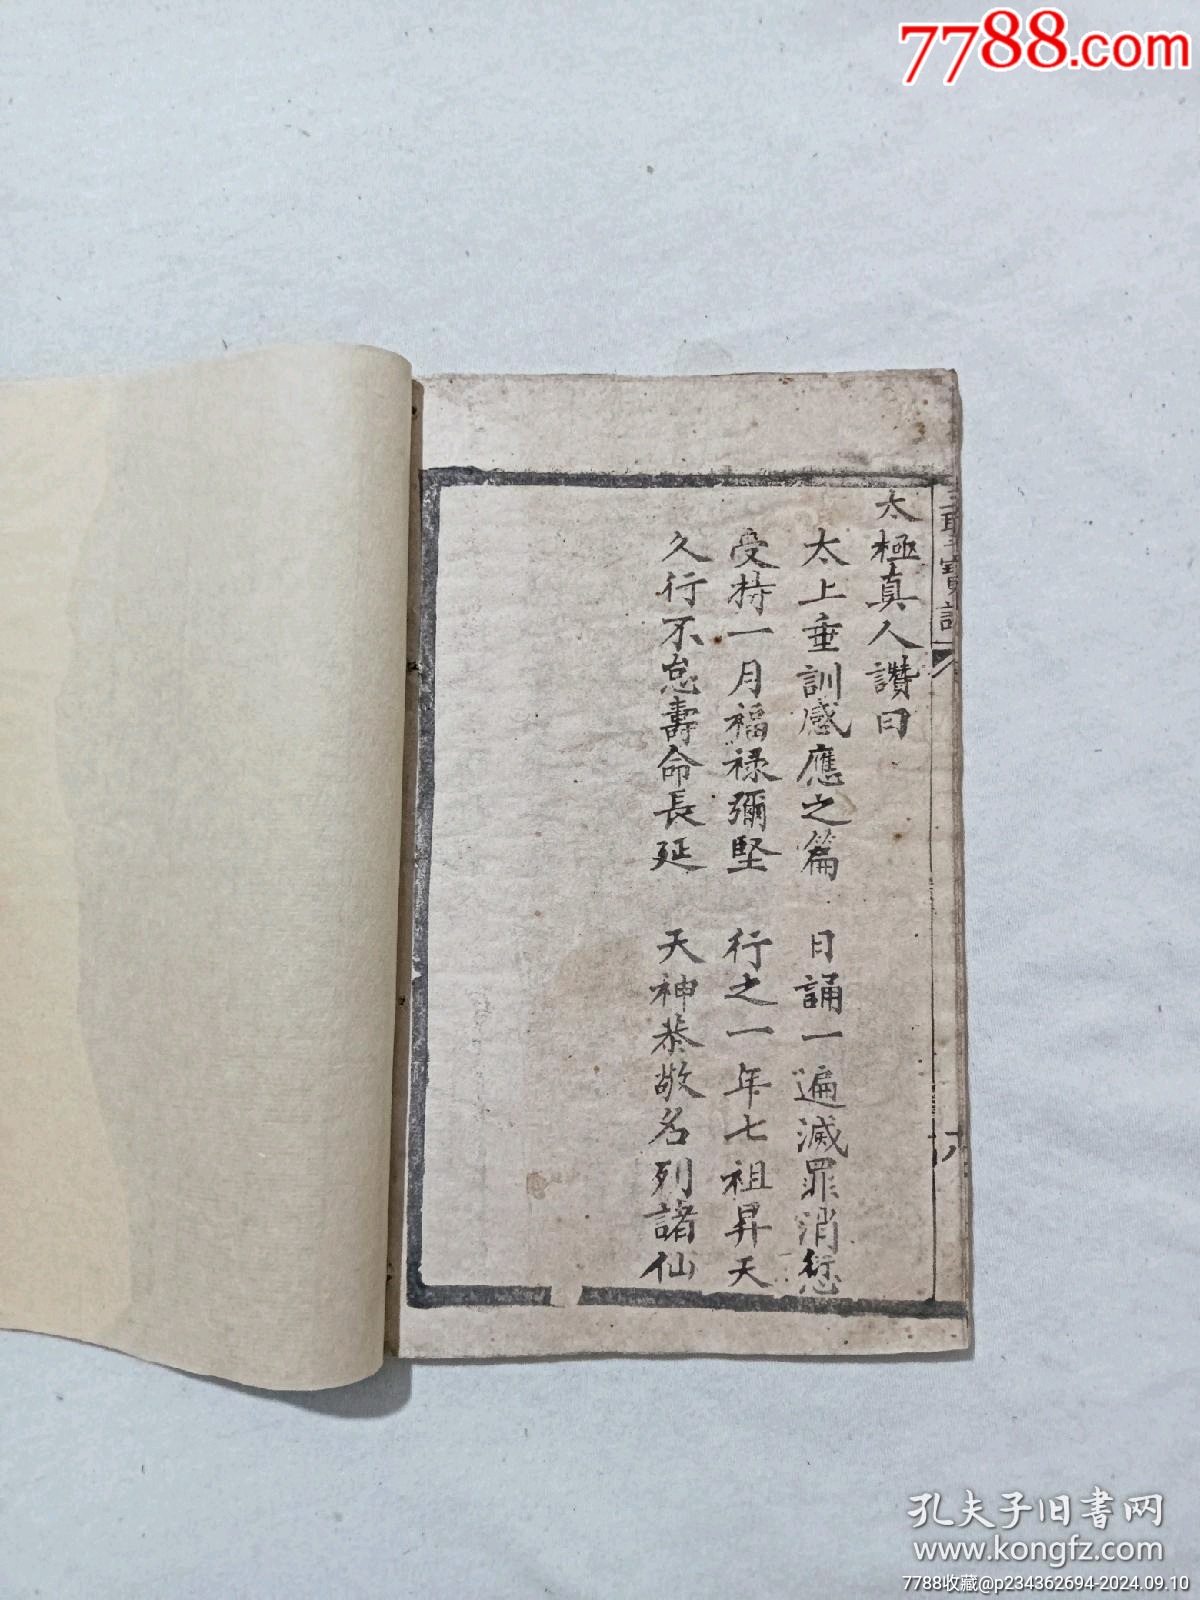 7788.com
太極真人讚曰
太上垂訓感應之篇　日誦一遍滅罪消愆
受持一月福祿彌堅　行之一年七祖昇天
久行不怠壽命長延　天神恭敬名列諸仙
孔夫子旧书网
www.kongfz.com
7788收藏@p234362694-2024.09.10